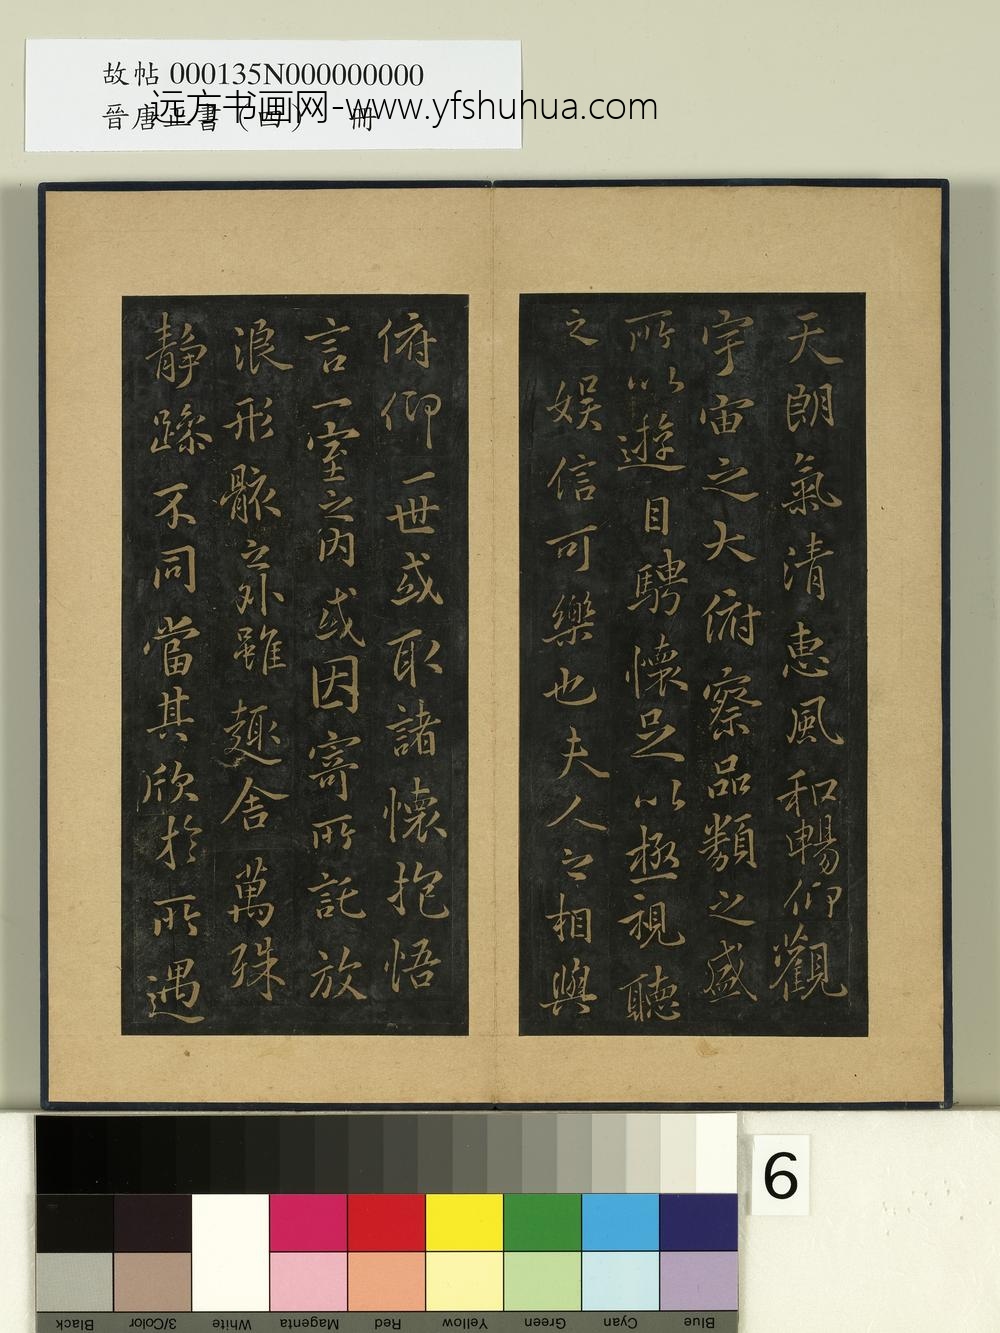 故帖 000135N000000000
晉唐正書（四） 冊
远方书画网-www.yfshuhua.com
天朗氣清惠風和暢仰觀
宇宙之大俯察品類之盛
所以遊目騁懷足以極視聽
之娛信可樂也夫人之相與
俯仰一世或取諸懷抱悟
言一室之內或因寄所託放
浪形骸之外雖趣舍萬殊
靜躁不同當其欣於所遇
6
Black 3/Color White Magenta Red Yellow Green Cyan Blue